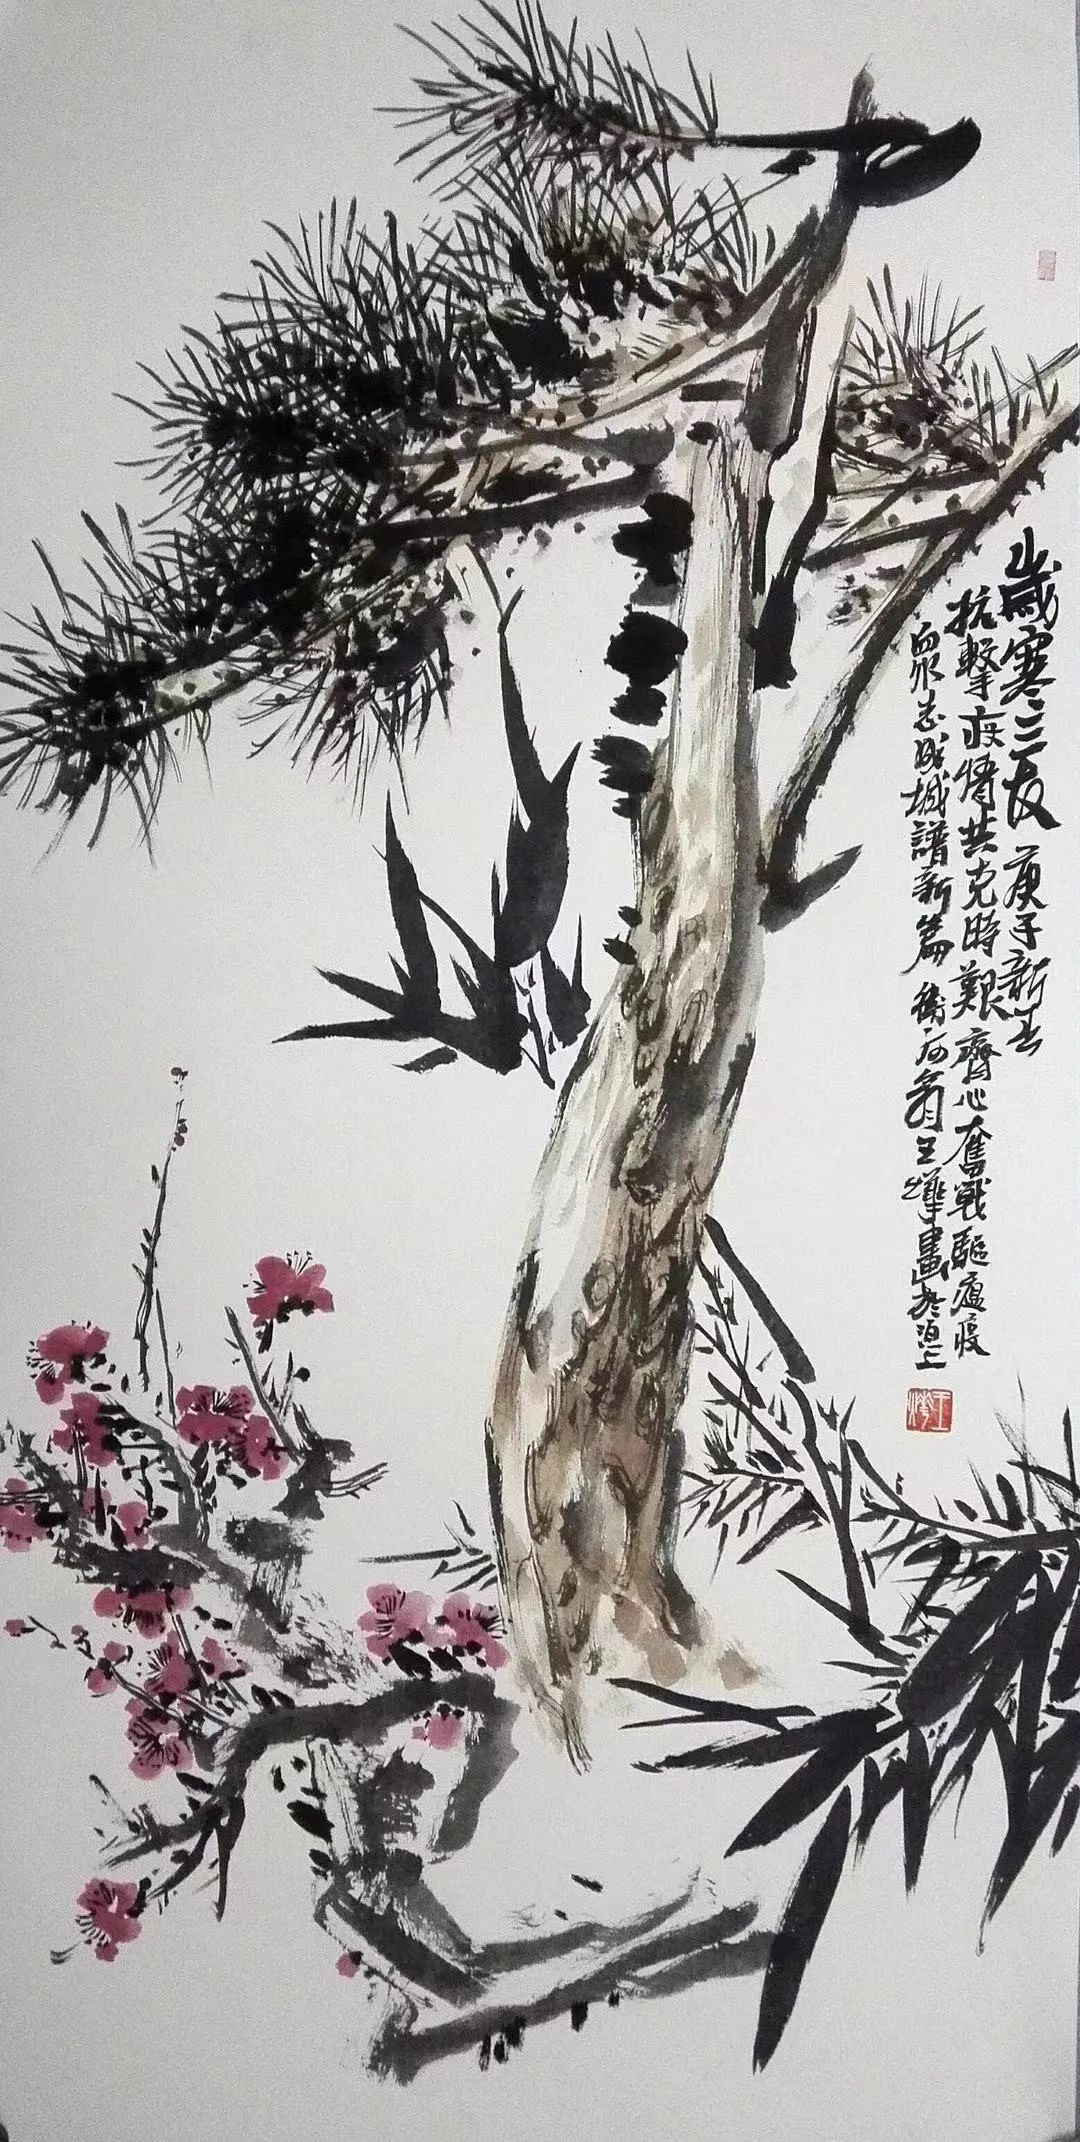 歲寒三友 庚子新春
抗擊疫情共克時艱齊心奮戰驅瘟疫
眾志成城譜新篇 翁王煒畫於滬上